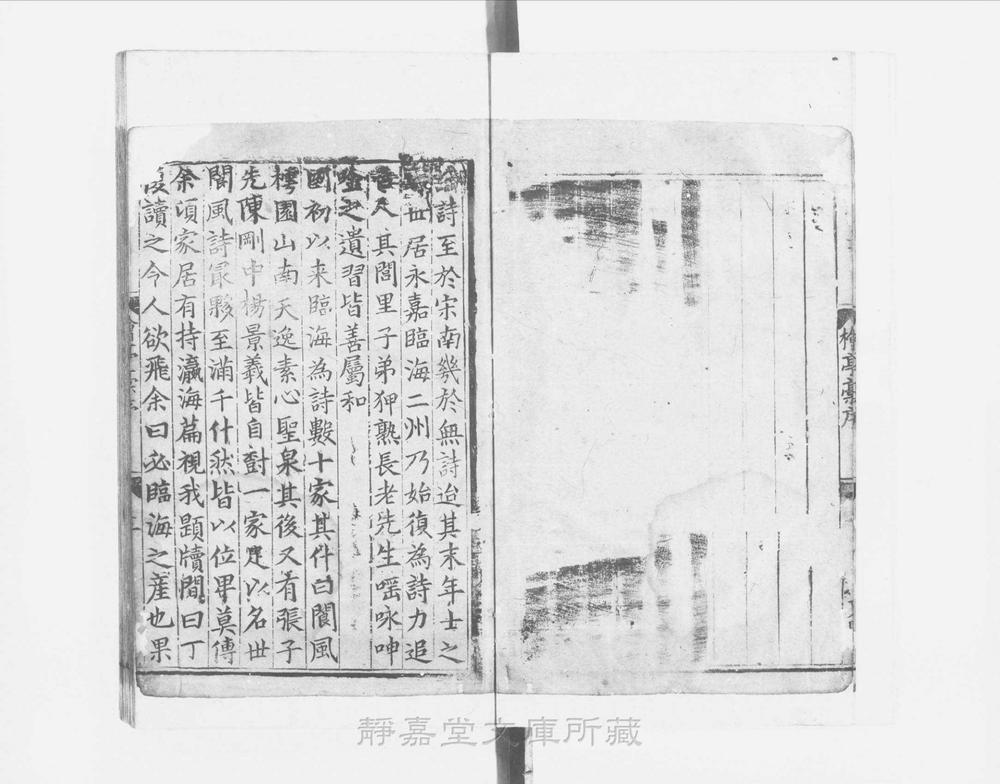 檜亭稾序
詩至於宋南幾於無詩迨其末年士之
世居永嘉臨海二州乃始復為詩力追
其閭里子弟狎熟長老先生嘔咏呻
之遺習皆善屬和
國初以来臨海為詩數十家其什曰閬風
樗園山南天逸素心聖泉其後又有張子
先陳剛中楊景羲皆自對一家足以名世
閬風詩冣夥至滿千什然皆以位畢莫傳
余頃家居有持瀛海篇視我題牘間曰丁
復讀之今人欲飛余曰必臨海之産也果
靜嘉堂文庫所藏